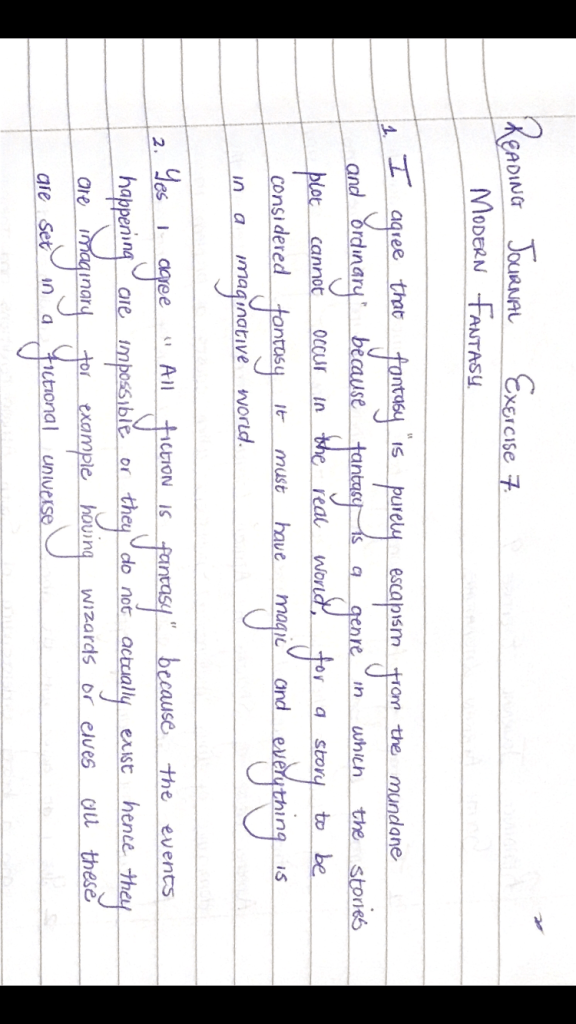 READING JOURNAL EXERCISE 7.
MODERN FANTASY
1. I agree that fantasy "is purely escapism from the mundane
and ordinary" because fantasy is a genre in which the stories
plot cannot occur in the real world, for a story to be
considered fantasy it must have magic and everything is
in a imaginative world.
2. Yes I agree "All fiction is fantasy" because the events
happening are impossible or they do not actually exist hence they
are imaginary for example having wizards or elves all these
are set in a fictional universe